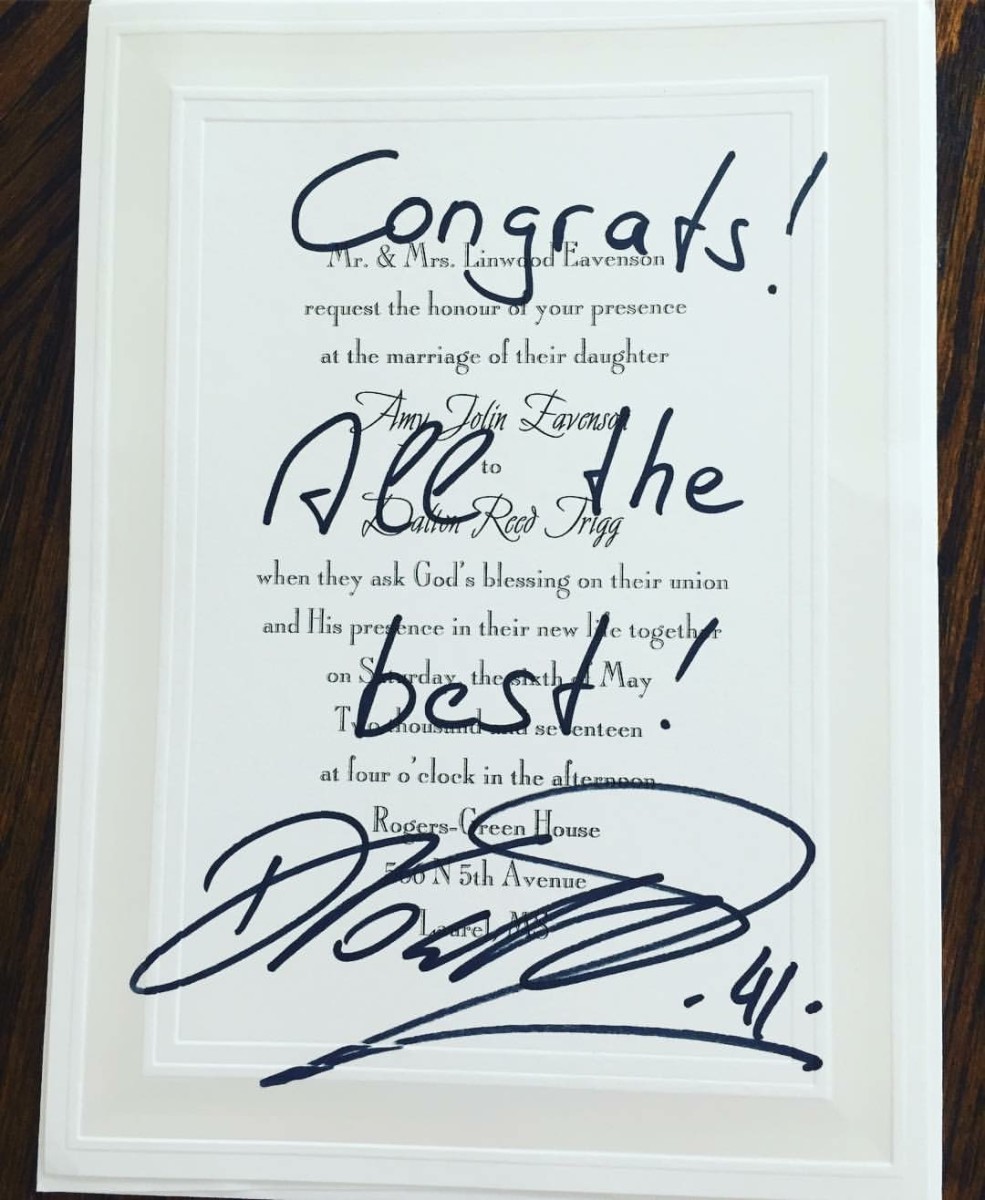 Congrats!
Mr. & Mrs. Linwood Eavenson
request the honour of your presence
at the marriage of their daughter
Amy Jolin Eavenson
All the
to
Dalton Reed Trigg
when they ask God's blessing on their union
and His presence in their new life together
on Saturday, the sixth of May
best!
Two thousand and seventeen
at four o'clock in the afternoon
Rogers-Green House
N 5th Avenue
Laurel, MS
. 41 .